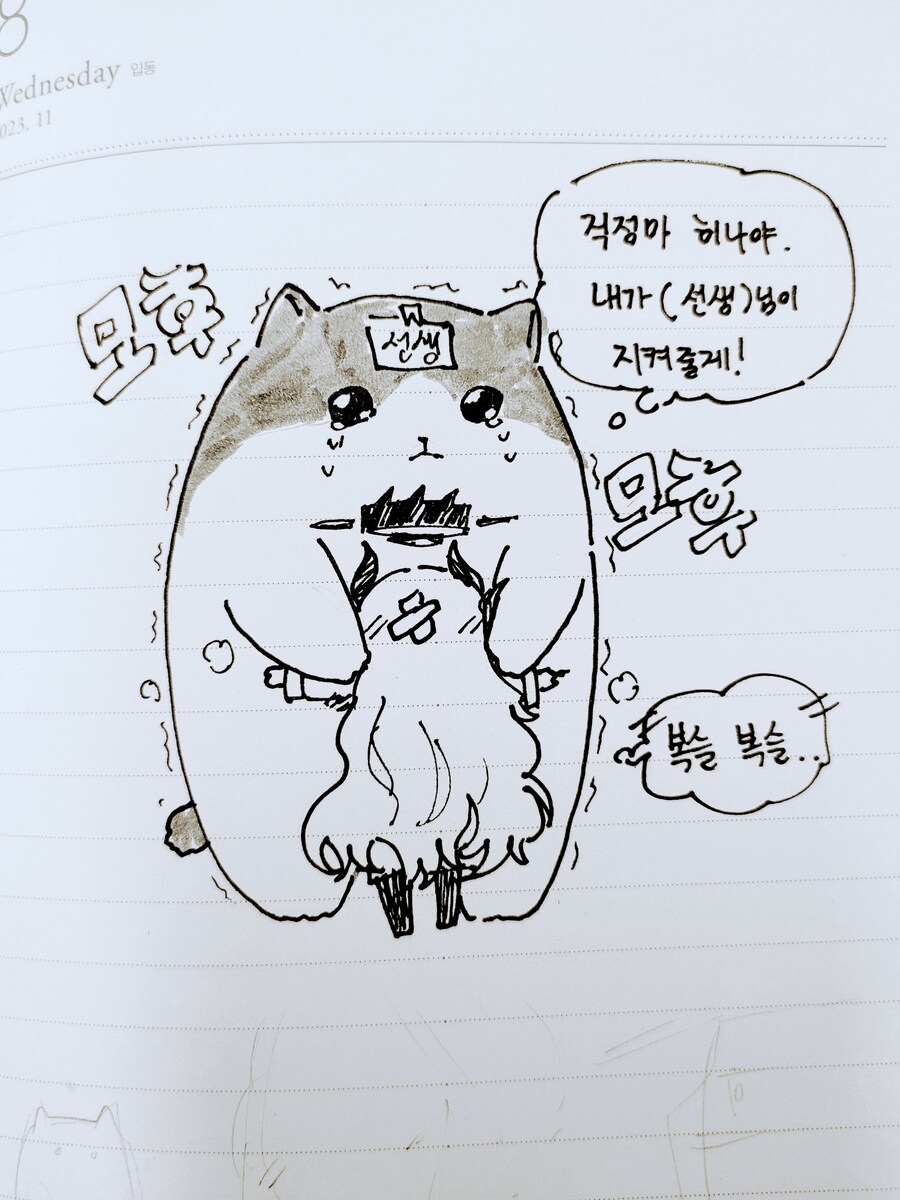 8
Wednesday 입동
023. 11
걱정마 히나야.
내가 (선생)님이
지켜줄게!
선생
복슬 복슬..